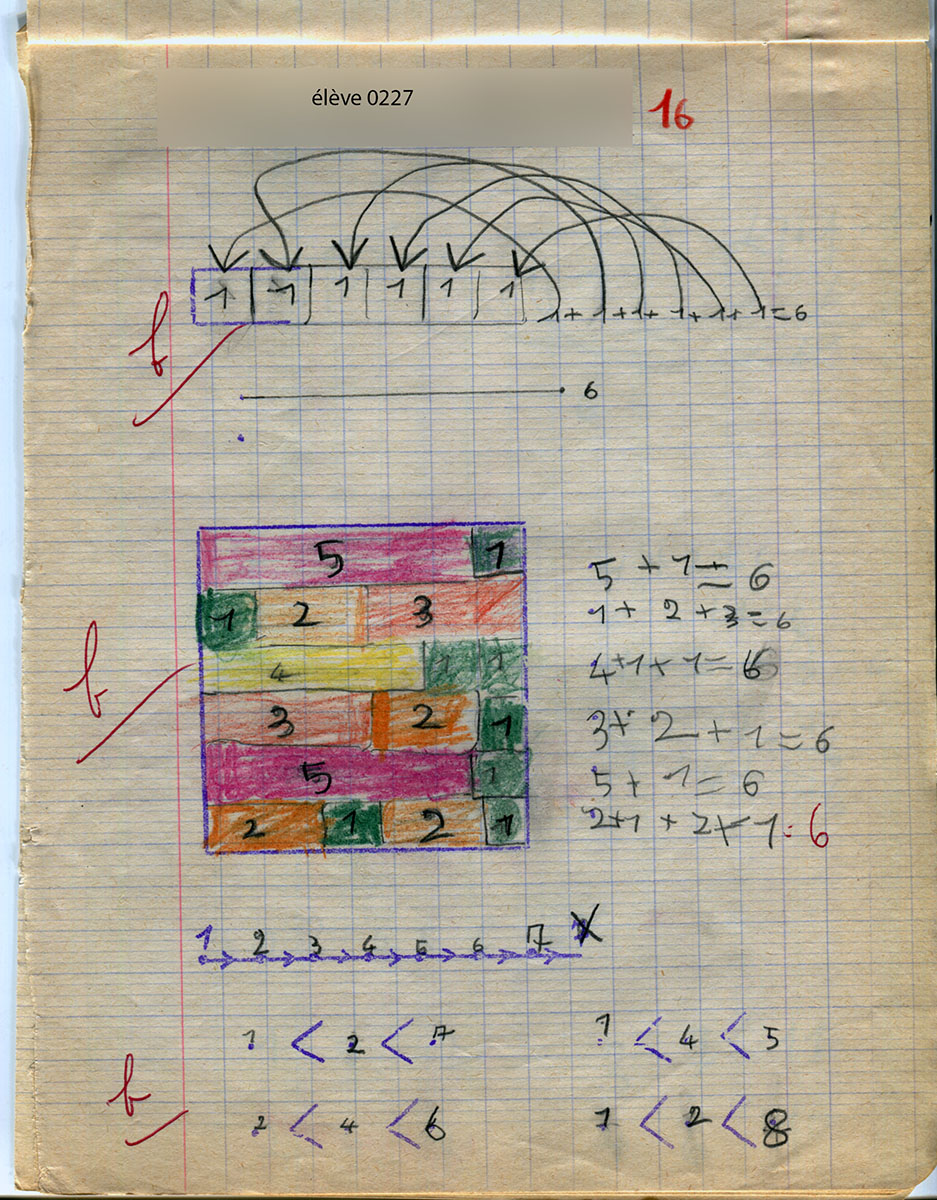 élève 0227
16
1 1 1 1 1 1 1+1+1+1+1+1=6
b
6
5 1 5+1=6
1 2 3 1+2+3=6
4 1 1 4+1+1=6
b
3 2 1 3+2+1=6
5 1 5+1=6
2 1 2 1 2+1+2+1=6
1 2 3 4 5 6 7
1<2<7 1<4<5
b
2<4<6 1<2<8